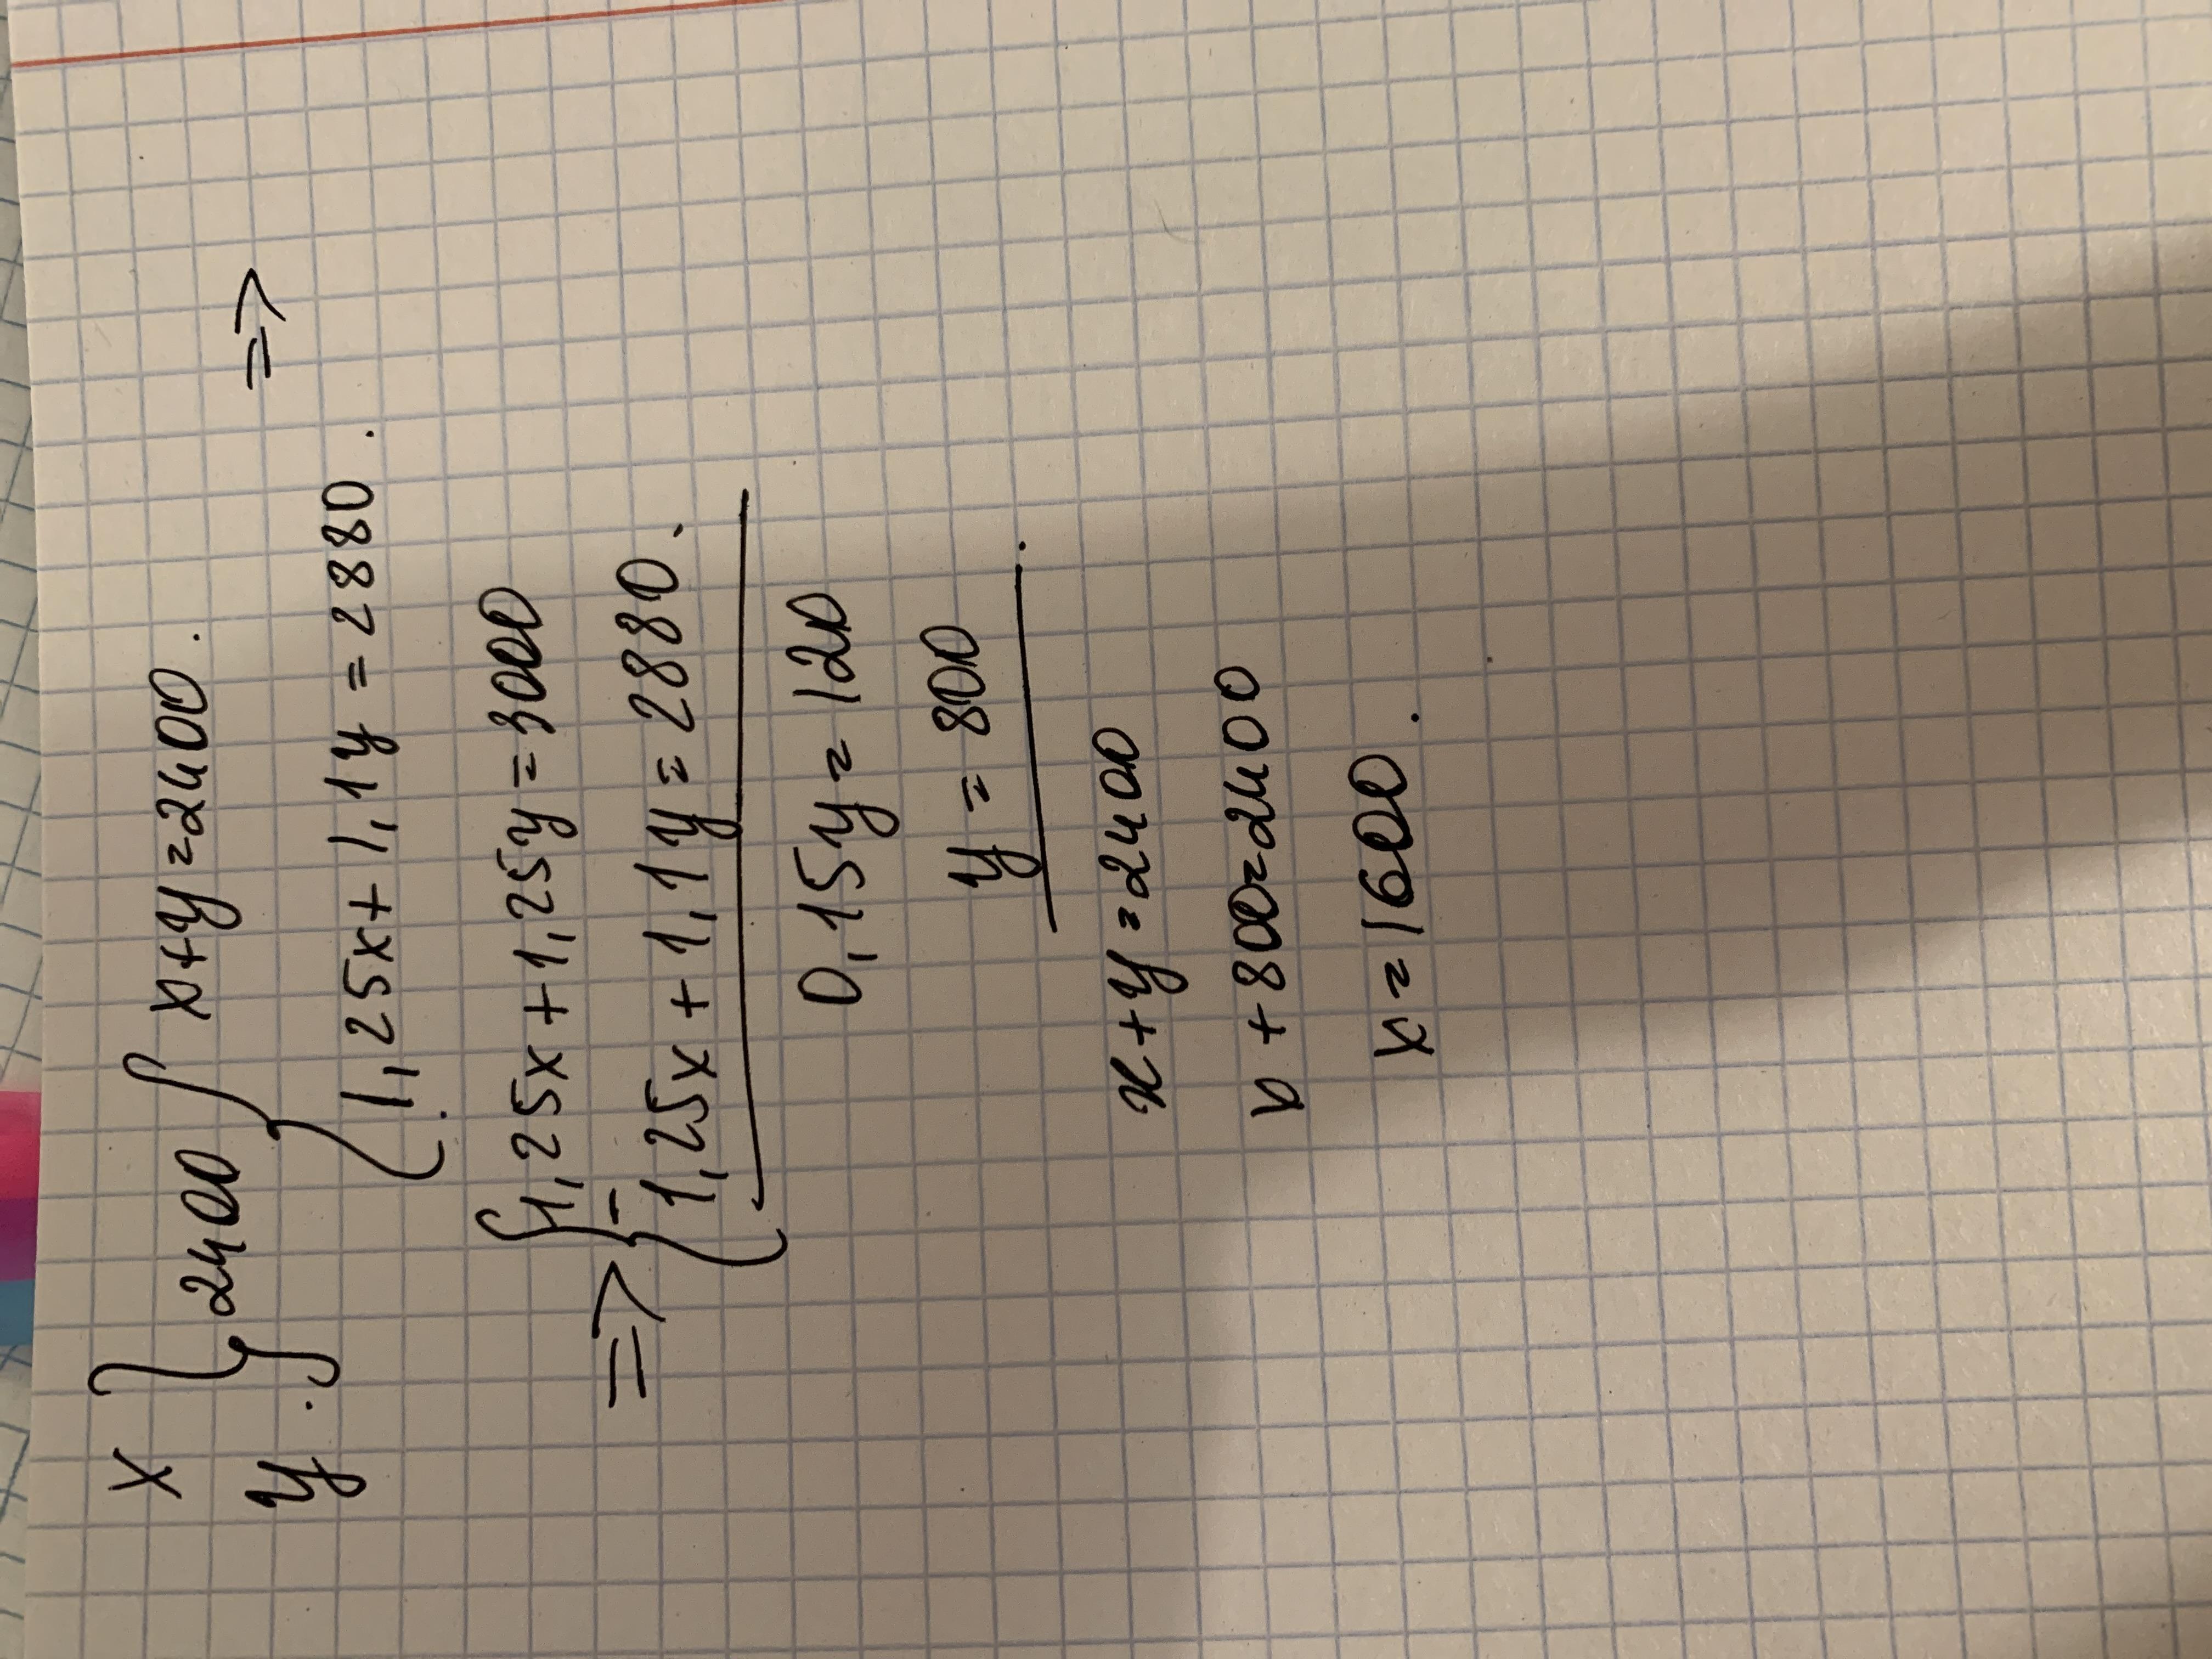 x } 2400 { x+y=2400.
y . 1,25x+1,1y=2880. =>
=> { 1,25x+1,25y=3000
- 1,25x+1,1y=2880.
0,15y=120
y=800.
x+y=2400
x+800=2400
x=1600.